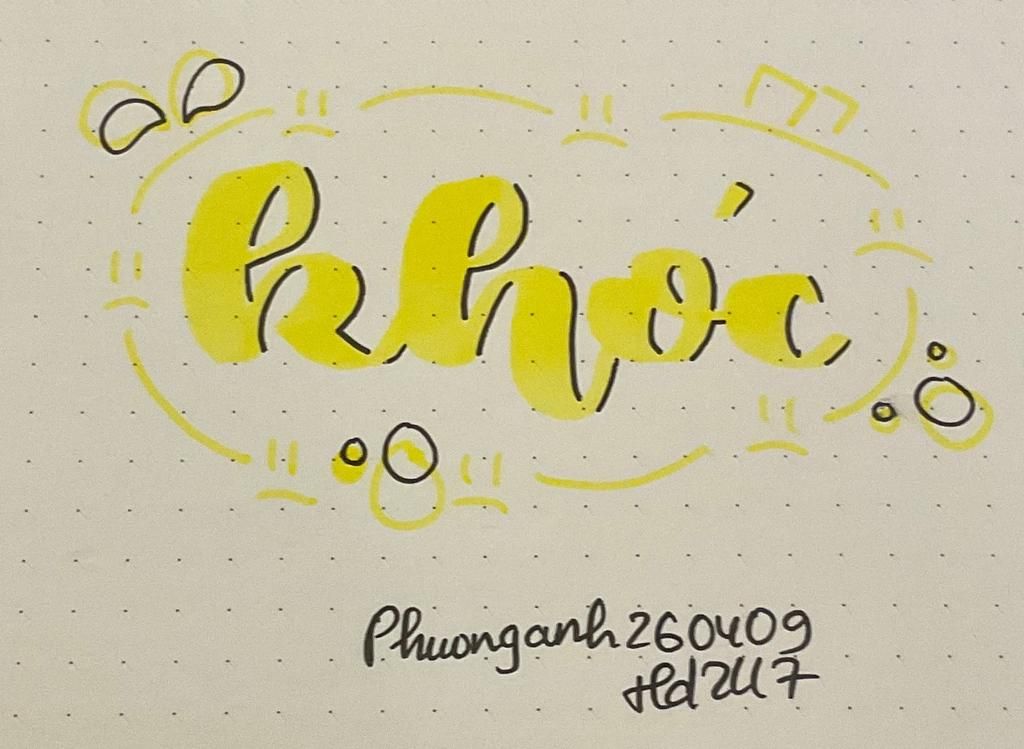 khóc
Phuonganh260409
Hd247